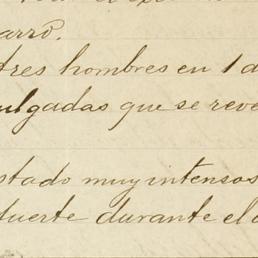 arro.
tres hombres en 1 d
ulgadas que se reve
stado muy intensos
fuerte durante el d